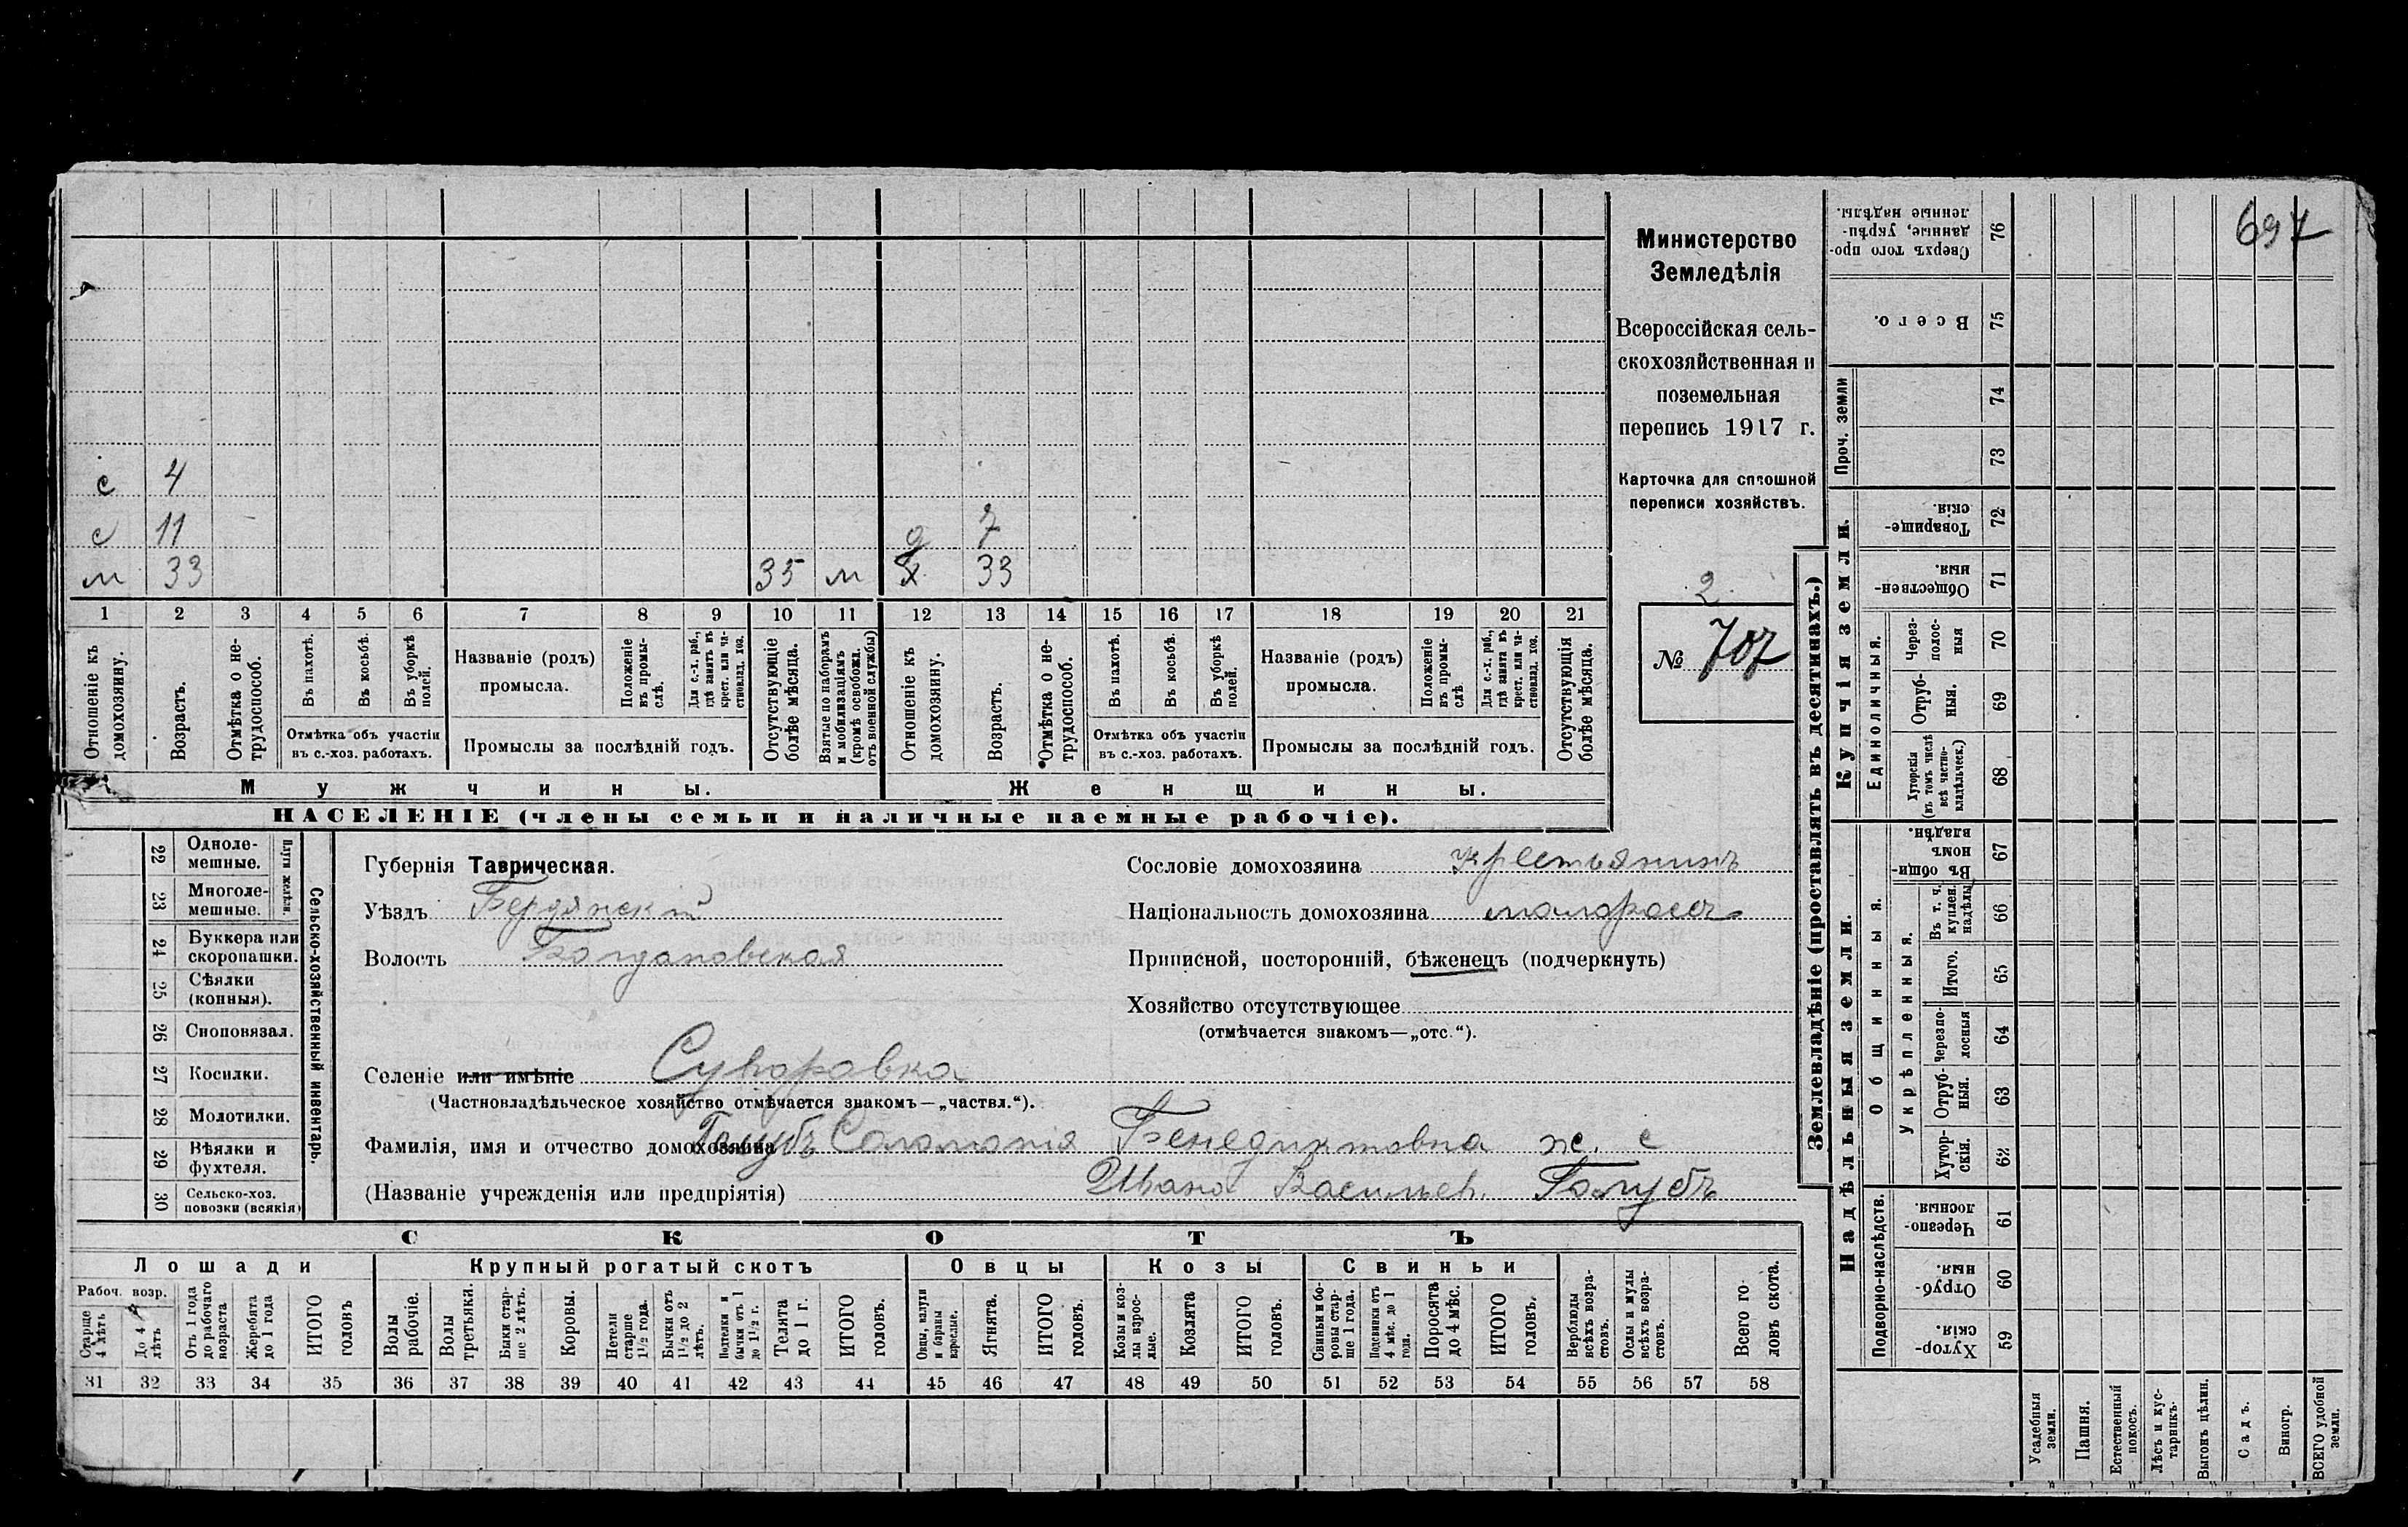 697
Министерство
Земледѣлія
Всероссійская сель-
скохозяйственная и
поземельная
перепись 1917 г.
Карточка для сплошной
переписи хозяйствъ.
2
№ 707
с 4
с 11 д 7
м 33 35 м х 33
1 2 3 4 5 6 7 8 9 10 11 12 13 14 15 16 17 18 19 20 21
Отношеніе къ домохозяину.
Возрастъ.
Отмѣтка о не-трудоспособ.
Въ пахотѣ.
Въ косьбѣ.
Въ уборкѣ полей.
Отмѣтка объ участіи въ с.-хоз. работахъ.
Названіе (родъ) промысла.
Положеніе въ промы-слѣ.
Для с.-х. раб., гдѣ занятъ въ крест. или ча-стновлад. хоз.
Промыслы за послѣдній годъ.
Отсутствующіе болѣе мѣсяца.
Взятые по наборамъ и мобилизаціямъ (кромѣ освобожд. отъ военной службы)
Отношеніе къ домохозяину.
Возрастъ.
Отмѣтка о не-трудоспособ.
Въ пахотѣ.
Въ косьбѣ.
Въ уборкѣ полей.
Отмѣтка объ участіи въ с.-хоз. работахъ.
Названіе (родъ) промысла.
Положеніе въ промы-слѣ
Для с.-х. раб., гдѣ занята въ крест. или ча-стновлад. хоз.
Промыслы за послѣдній годъ.
Отсутствующія болѣе мѣсяца.
Мужчины.
Женщины.
НАСЕЛЕНІЕ (члены семьи и наличные наемные рабочіе).
22 Одноле-мешные.
23 Многоле-мешные.
Плуги желѣзн.
24 Буккера или скоропашки.
25 Сѣялки (конныя).
26 Сноповязал.
27 Косилки.
28 Молотилки.
29 Вѣялки и фухтеля.
30 Сельско-хоз. повозки (всякія)
Сельско-хозяйственный инвентарь.
Губернія Таврическая.
Уѣздъ Бердянскій
Волость Богдановская
Сословіе домохозяина крестьянинъ
Національность домохозяина малороссъ
Приписной, посторонній, бѣженецъ (подчеркнуть)
Хозяйство отсутствующее
(отмѣчается знакомъ—„отс.“).
Селеніе или имѣніе Суворовка
(Частновладѣльческое хозяйство отмѣчается знакомъ—„частвл.“).
Фамилія, имя и отчество домохозяина Голубъ Соломонія Бенедиктовна ж. с
(Названіе учрежденія или предпріятія) Ивана Васильев. Голубъ
СКОТЪ
Лошади
Крупный рогатый скотъ
Овцы
Козы
Свиньи
Рабоч. возр.
Старше 4 лѣтъ
До 4 лѣтъ
Отъ 1 года до рабочаго возраста
Жеребята до 1 года
ИТОГО головъ
Волы рабочіе.
Волы третьяки.
Быки стар-ше 2 лѣтъ.
Коровы.
Нетели старше 1½ года.
Бычки отъ 1½ до 2 лѣтъ.
Подтелки и бычки отъ 1 до 1½ г.
Телята до 1 г.
ИТОГО головъ.
Овцы, валухи и бараны взрослые.
Ягнята.
ИТОГО головъ.
Козы и коз-лы взрос-лые.
Козлята
ИТОГО головъ.
Свиньи и бо-ровы стар-ше 1 года.
Подсвинки отъ 4 мѣс. до 1 года.
Поросята до 4 мѣс.
ИТОГО головъ.
Верблюды всѣхъ возра-стовъ.
Ослы и мулы всѣхъ возра-стовъ.
Всего го-ловъ скота.
31 32 33 34 35 36 37 38 39 40 41 42 43 44 45 46 47 48 49 50 51 52 53 54 55 56 57 58
Землевладѣніе (проставлять въ десятинахъ.)
Сверхъ того про-данные, укрѣп-ленные надѣлы. 76
Всего. 75
Проч. земли
74
73
Купчія земли.
Товарище-скія. 72
Обществен-ныя. 71
Единоличныя.
Через-полос-ныя 70
Отруб-ныя. 69
Хуторскія (въ томъ числѣ всѣ частно-владѣльческ.) 68
Надѣльныя земли.
Общинныя.
Въ общи-номъ владѣн. 67
Укрѣпленныя.
Въ т. ч. куплен. надѣлы 66
Итого. 65
Черезпо-лосныя 64
Отруб-ныя. 63
Хутор-скія. 62
Подворно-наслѣдств.
Черезпо-лосныя. 61
Отруб-ныя. 60
Хутор-скія. 59
Усадебныя земли.
Пашня.
Естественный покосъ.
Лѣсъ и кус-тарникъ.
Выгонъ цѣлин.
Садъ.
Виногр.
ВСЕГО удобной земли.